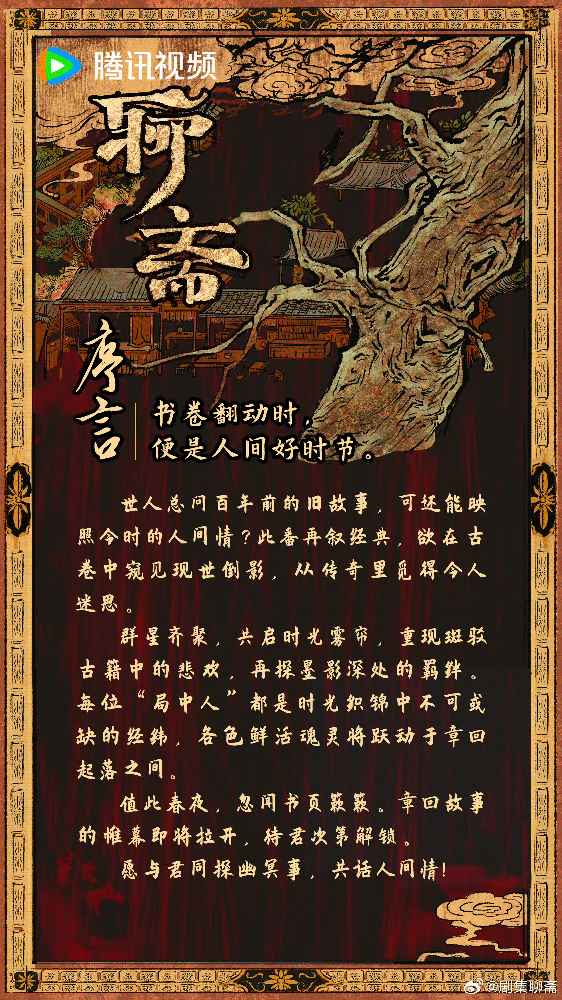 腾讯视频
聊斋
序言
书卷翻动时,
便是人间好时节。
世人总问百年前的旧故事，可还能映
照今时的人间情？此番再叙经典，欲在古
卷中窥见现世倒影，从传奇里觅得今人
迷思。
群星齐聚，共启时光雾帘，重现斑驳
古籍中的悲欢，再探墨影深处的羁绊。
每位“局中人”都是时光织锦中不可或
缺的经纬，各色鲜活魂灵将跃动于章回
起落之间。
值此春夜，忽闻书页簌簌。章回故事
的帷幕即将拉开，待君次第解锁。
愿与君同探幽冥事，共话人间情！
@剧集聊斋